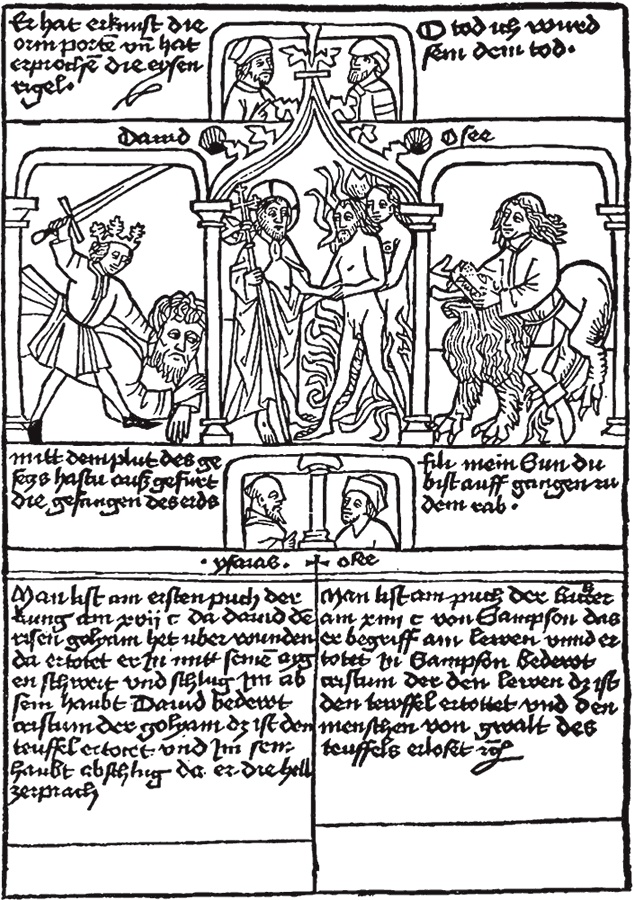 Er hat erknust die
orin porte vn̄ hat
erproche die eysen
rigel.
O tod ich wurd
sein dein tod.
Dauid
Osee
mitt dem plut des ge
seczs hastu auß gefürt
die gefangen des erds
fili mein Sun du
bist auff gangen zu
dem rab.
ysaias.
Man list am ersten puch der
kung am xvij c da dauid dē
risen golyam het uber wunden
da ertotet er In mitt seinē aig
en schwert vnd schlug Im ab
sein haubt Dauid bedewt
cristum der golyam dz ist den
teuffel ertotet vnd Im sein
haubt abschlug da er die hell
zerprach
Man list am puch der
am xiiii c von Sampson das
er begriff am lewen vnnd er
totet In Sampson bedewt
cristum der den lewen dz ist
den tewffel ertottet vnd den
menschen von gwalt des
teuffels erloset